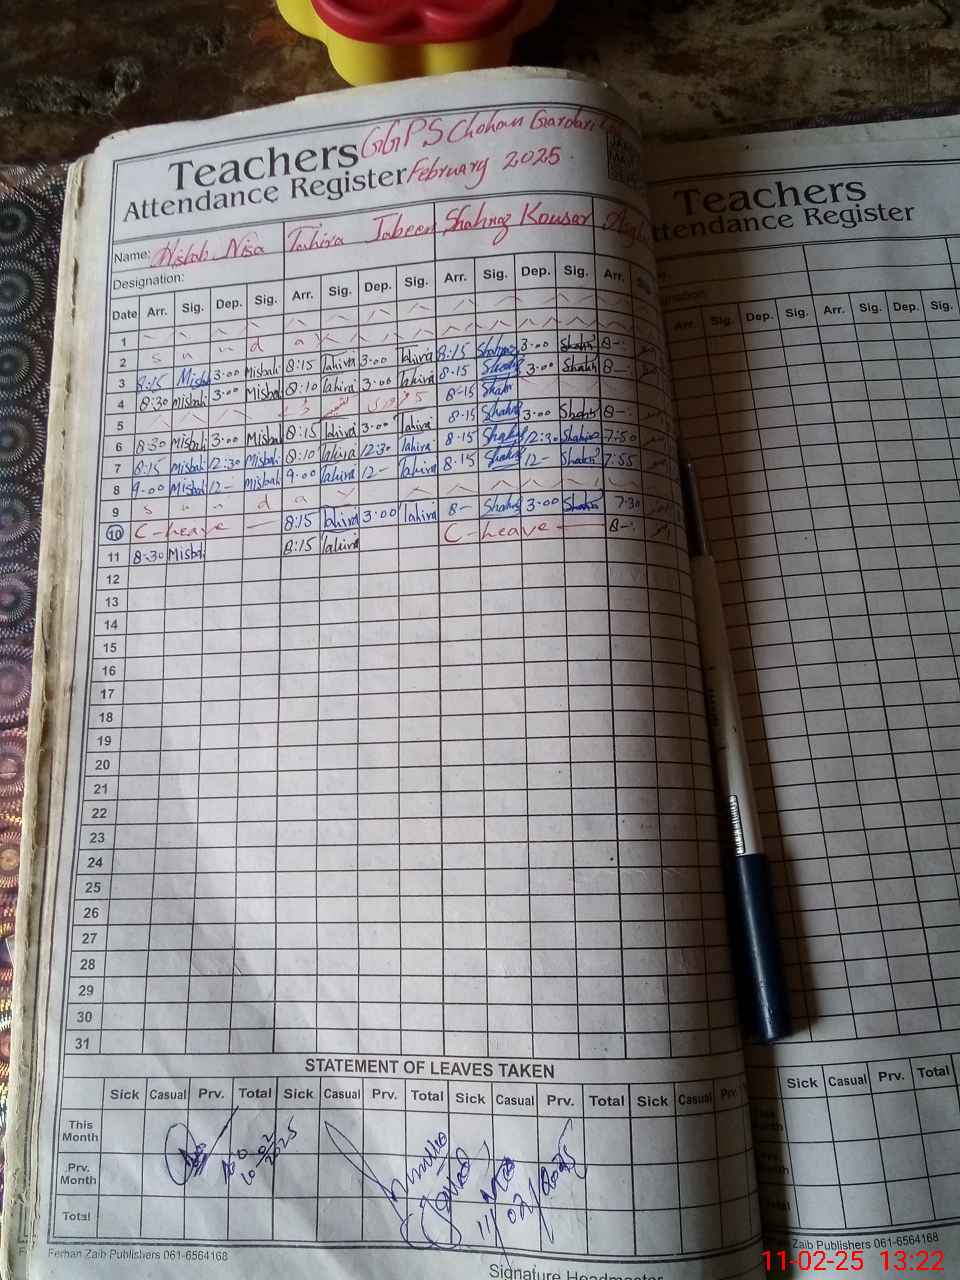 Teachers GGPS Chohan Gardari
Attendance Register February 2025
Name: Misbah Nisa Tahira Jabeen Shahnaz Kousar
Designation:
Date Arr. Sig. Dep. Sig. Arr. Sig. Dep. Sig. Arr. Sig. Dep. Sig. Arr.
1
2 S u n d a y
3 8:15 Misbah 3:00 Misbah 8:15 Tahira 3:00 Tahira 8:15 Shahnaz 3:00 Shahn 8-:
4 8:30 Misbah 3:00 Misbah 8:10 Tahira 3:00 Tahira 8-15 Shahn 3:00 Shahn 8-:
5 8-15 Shahn
6 8:30 Misbah 3:00 Misbah 8:15 Tahira 3:00 Tahira 8-15 Shahn 3:00 Shahn 8-:
7 8:15 Misbah 12:30 Misbah 8:10 Tahira 12:30 Tahira 8-15 Shahn 12:30 Shahnz 7:50
8 9:00 Misbah 12- Misbah 9:00 Tahira 12- Tahira 8-15 Shahn 12- Shahnz 7:55
9 S u n d a y
10 C-leave 8:15 Tahira 3:00 Tahira 8- Shahn 3:00 Shahn 7:30
11 8:30 Misbah 8:15 Tahira C-leave 8-:
12
13
14
15
16
17
18
19
20
21
22
23
24
25
26
27
28
29
30
31
STATEMENT OF LEAVES TAKEN
Sick Casual Prv. Total Sick Casual Prv. Total Sick Casual Prv. Total Sick Casual Prv
This Month
Prv. Month
Total
10-02-2025
11/02/2025
Ferhan Zaib Publishers 061-6564168
Signature Headmaster
Teachers
Attendance Register
Arr. Sig. Dep. Sig. Arr. Sig. Dep. Sig.
Sick Casual Prv. Total
Zaib Publishers 061-6564168
11-02-25 13:22